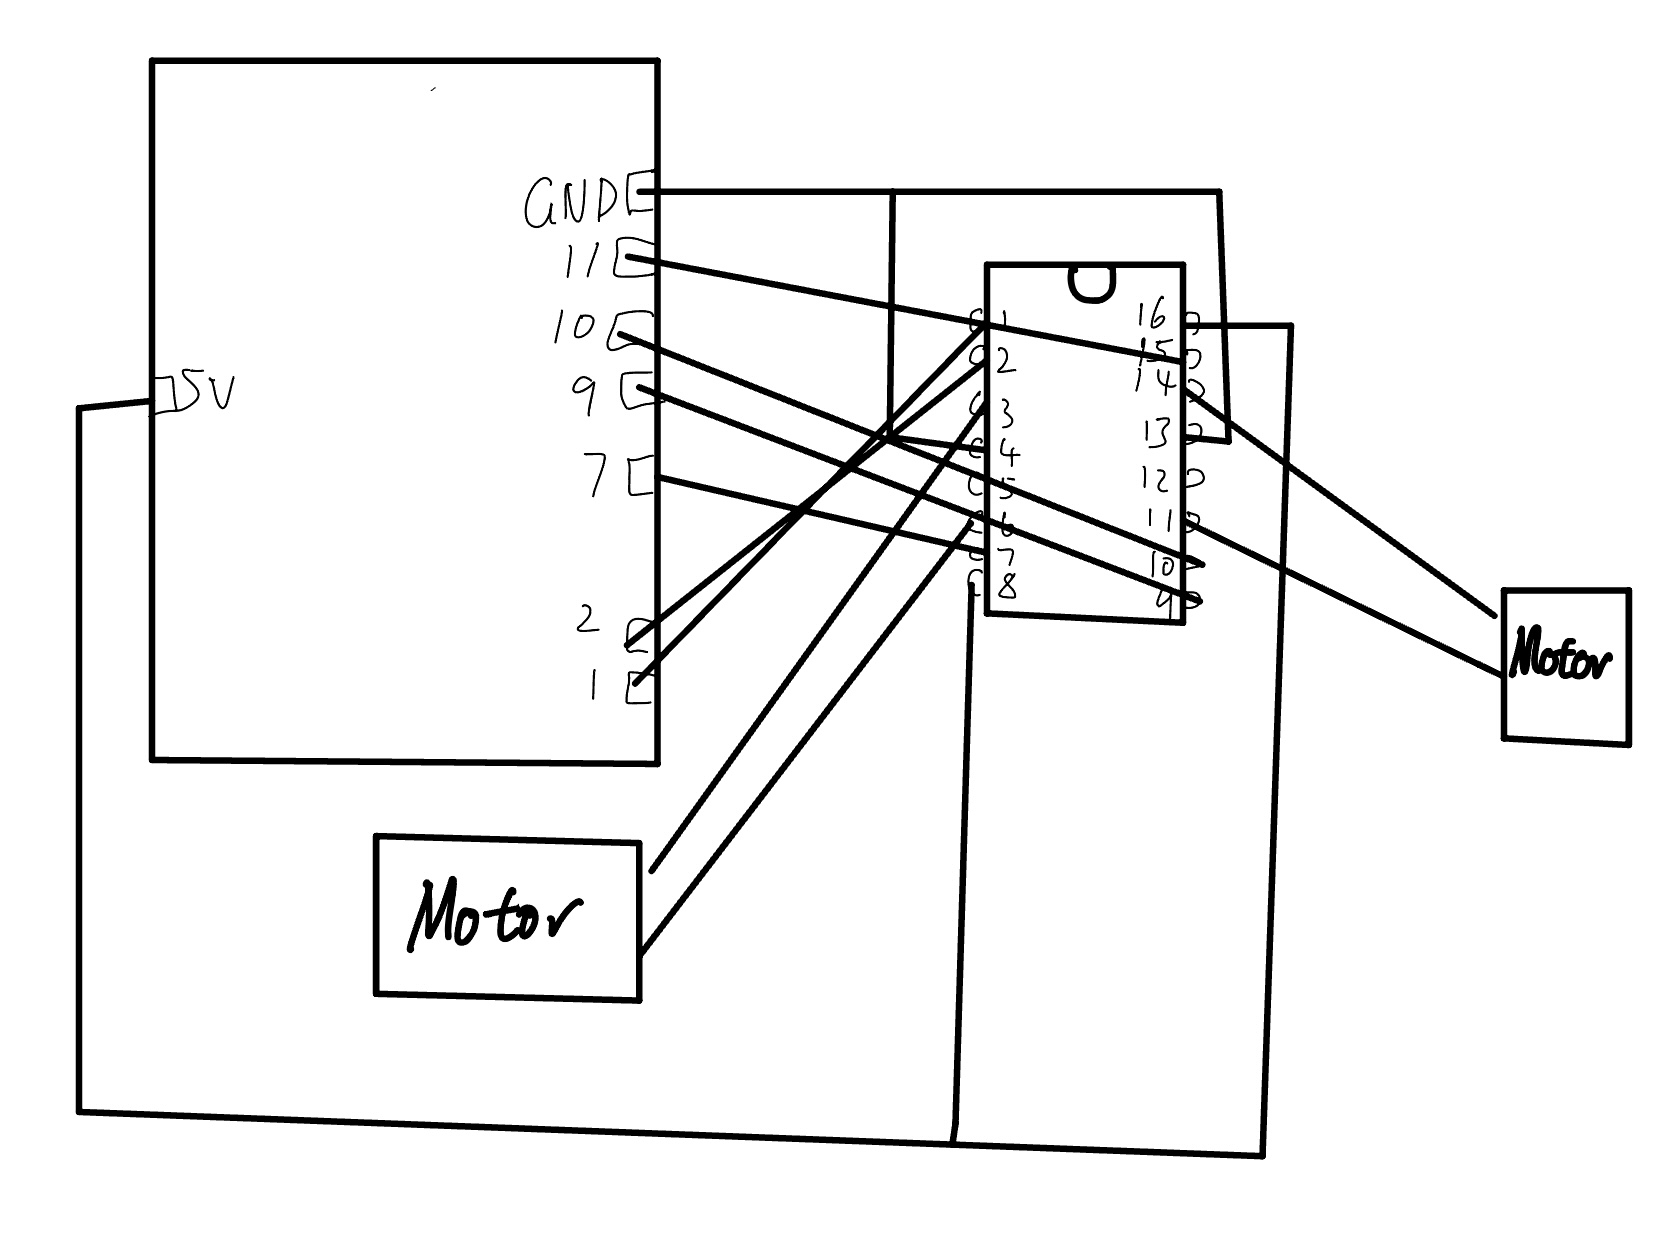 GND
11
10
9
7
2
1
5V
1
2
3
4
5
6
7
8
16
15
14
13
12
11
10
9
Motor
Motor